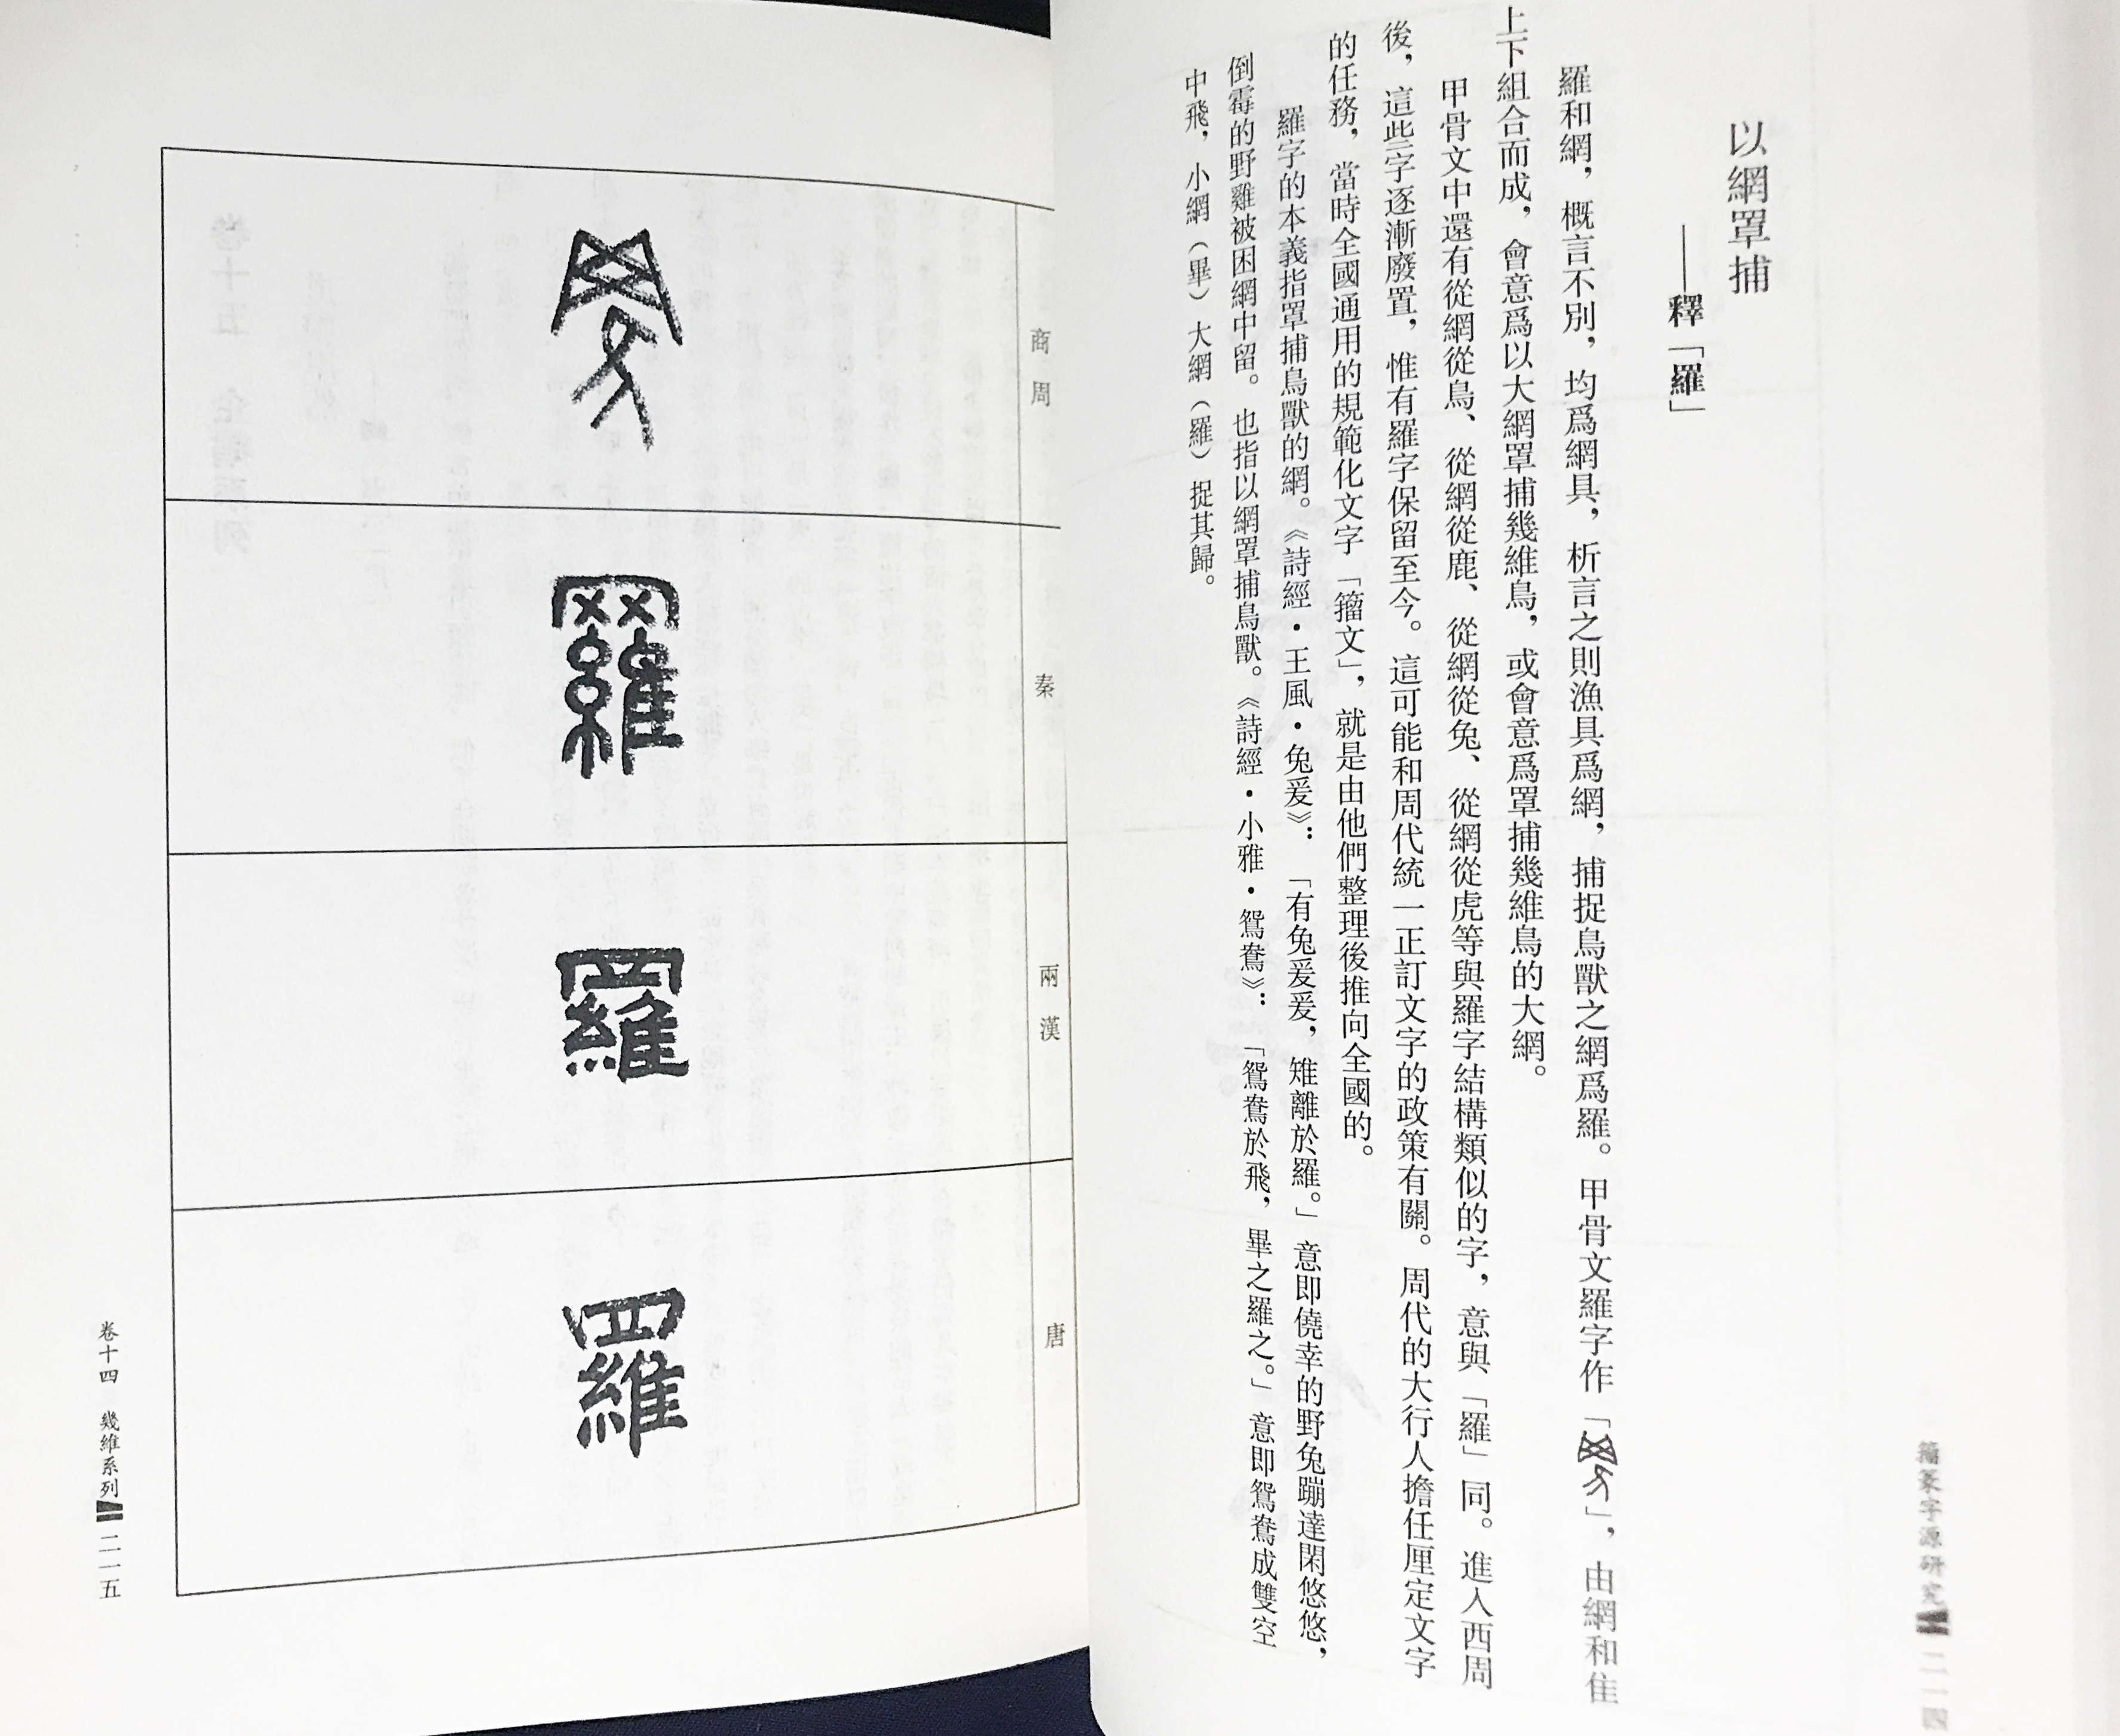 以網罩捕
——釋「羅」
羅和網，概言不別，均爲網具，析言之則漁具爲網，捕捉鳥獸之網爲羅。甲骨文羅字作「」，由網和隹
上下組合而成，會意爲以大網罩捕幾維鳥，或會意爲罩捕幾維鳥的大網。
甲骨文中還有從網從鳥、從網從鹿、從網從兔、從網從虎等與羅字結構類似的字，意與「羅」同。進入西周
後，這些字逐漸廢置，惟有羅字保留至今。這可能和周代統一正訂文字的政策有關。周代的大行人擔任厘定文字
的任務，當時全國通用的規範化文字「籀文」，就是由他們整理後推向全國的。
羅字的本義指罩捕鳥獸的網。《詩經·王風·兔爰》：「有兔爰爰，雉離於羅。」意即僥幸的野兔蹦達閑悠悠，
倒霉的野雞被困網中留。也指以網罩捕鳥獸。《詩經·小雅·鴛鴦》：「鴛鴦於飛，畢之羅之。」意即鴛鴦成雙空
中飛，小網（畢）大網（羅）捉其歸。
籀篆字源研究 二一四
商周
秦
羅
兩漢
羅
唐
羅
卷十四 幾維系列 二一五